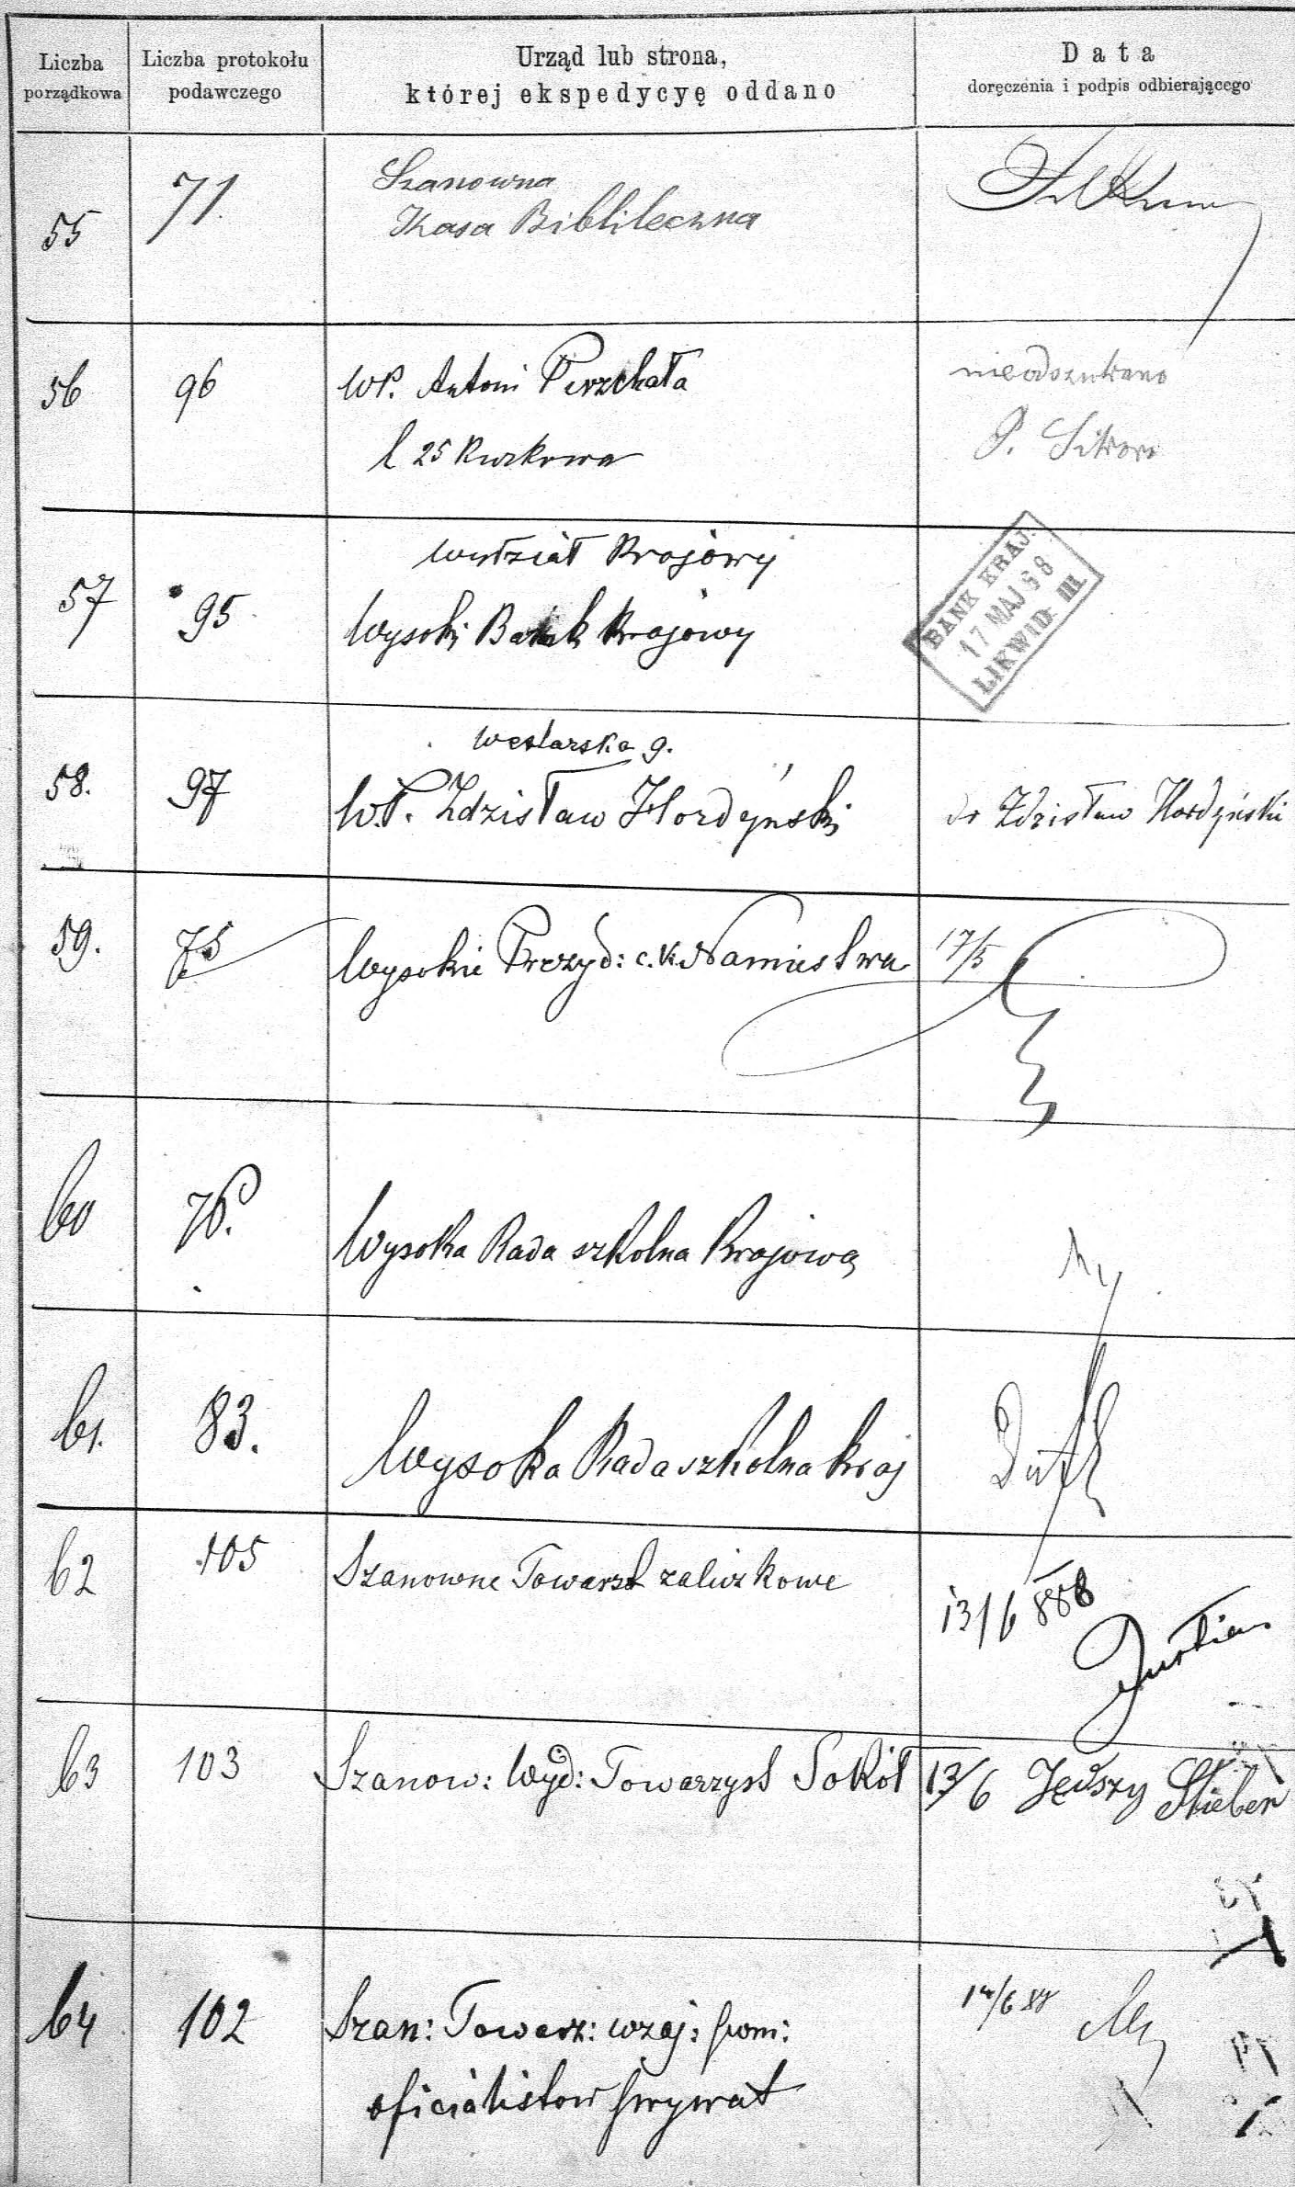 Liczba porządkowa
Liczba protokołu podawczego
Urząd lub strona,
której ekspedycyę oddano
Data
doręczenia i podpis odbierającego
55 71 Szanowna
Kasa Biblileczna
56 96 WP. Antoni Pierzchała nieodszukano
l 25 Kurkowa P.
Wydział Krajowy
57 95 Wysoki Bank Krajowy
BANK KRAJ.
17 MAJ 88
LIKWID: III.
Weslarska 9.
58. 97 W.P. Zdzisław Hordyński dr Zdzisław Hordyński
59. 75 Wysokie Prezyd: c.k. Namiestwa 17/5
60 76. Wysoka Rada szkolna Krajowa
61. 83. Wysoka Rada szkolna kraj
62 105 Szanowne Towarzst zaliczkowe 13/6 888
63 103 Szanow: Wyd: Towarzyst Sokół 13/6 Stieber
64 102 Szan: Towarz: wzaj: pom: 14/6 88
oficialistow prywat